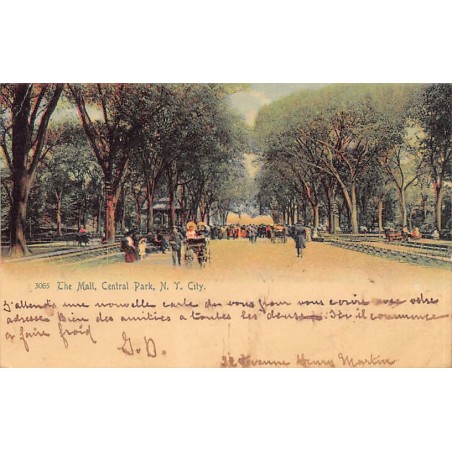 3065 The Mall, Central Park, N. Y. City.
J'attends une nouvelle carte de vous pour vous ecrire avec votre
adresse Bien des amitiés a toutes les deux. Ici il commence
a faire froid
G. D.
32 Avenue Henry Martin